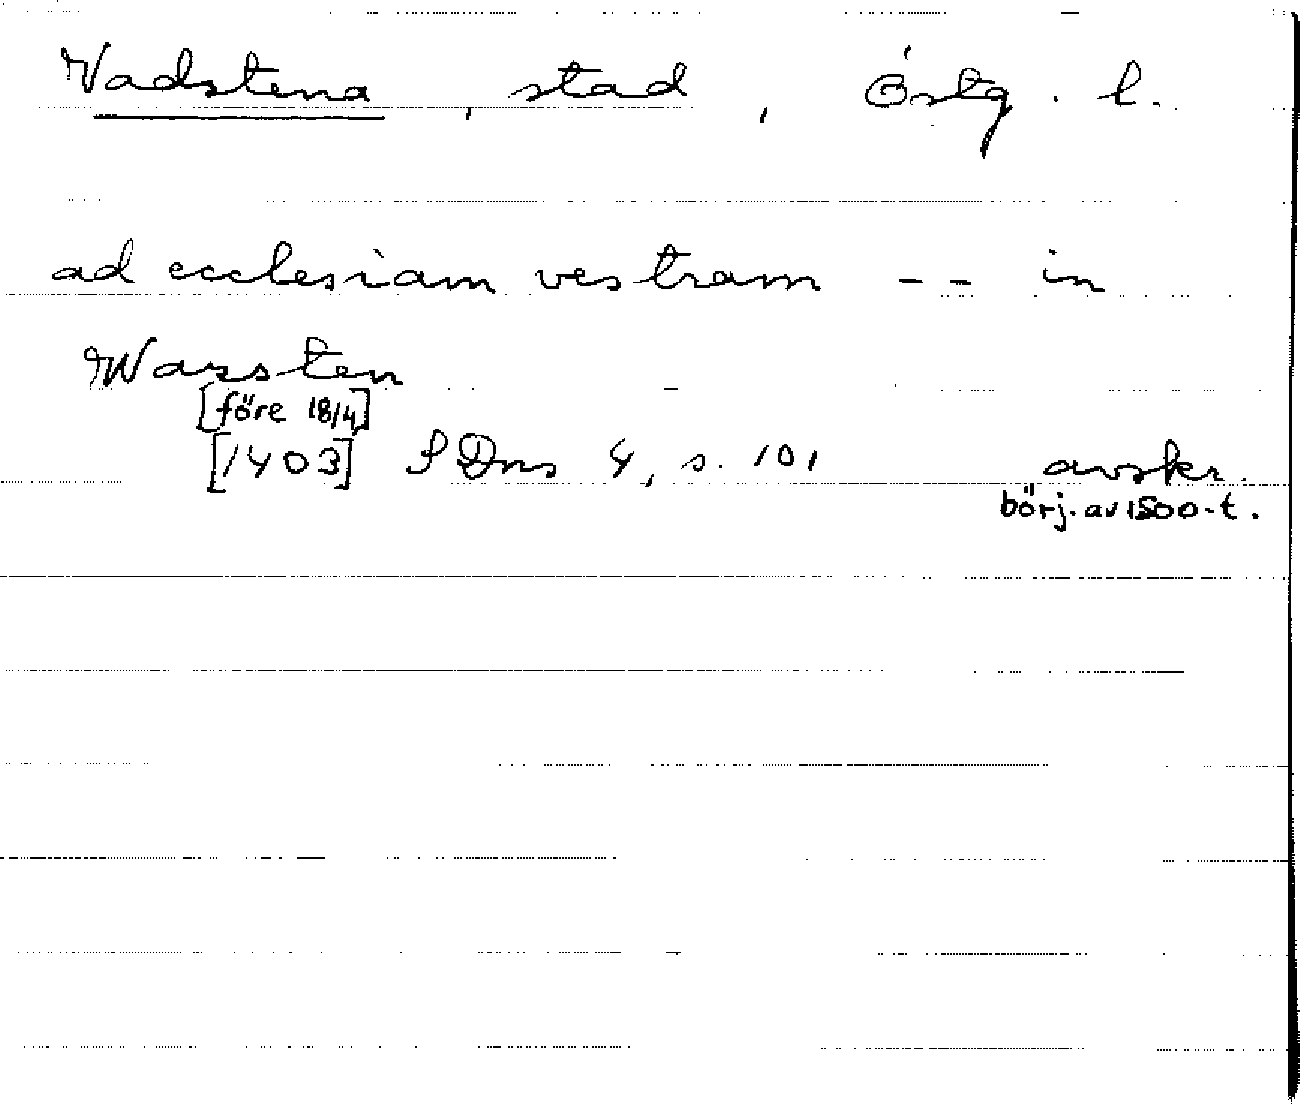 Vadstena, stad, Östg. l.
ad ecclesiam vestram -- in
Wazsten
[före 18/4]
[1403] SDns 4, s. 101 avskr.
börj. av 1500-t.